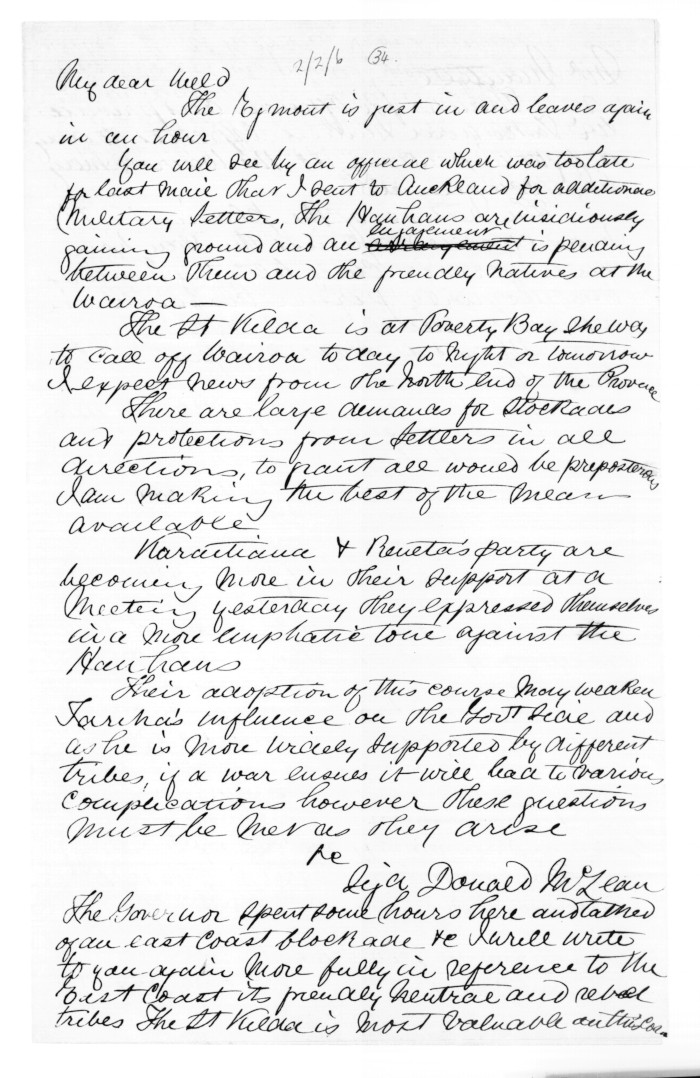 2/2/6 34.
My dear Weld
The Egmont is just in and leaves again
in an hour
You will see by an official which was too late
for last mail that I sent to Auckland for additional
Military Settlers, The Hauhaus are insidiously
engagement
gaining ground and an arrangement is pending
between them and the friendly Natives at the
Wairoa —
The St Kilda is at Poverty Bay She was
to call off Wairoa today to night or tomorrow
I expect news from the North end of the Province
There are large demands for Stockades
and protections from Settlers in all
directions, to grant all would be preposterous
I am making the best of the means
available
Karaitiana & Reneta's party are
becoming more in their support at a
Meeting yesterday they expressed themselves
in a more emphatic tone against the
Hauhaus
Their adoption of this course may weaken
Tareha's influence on the Govt side and
as he is more widely supported by different
tribes, if a war ensues it will lead to various
complications however these questions
must be met as they arise
&c
Sigd Donald McLean
The Governor spent some hours here and talked
of an east Coast blockade &c I will write
to you again more fully in reference to the
East Coast its friendly neutral and rebel
tribes The St Kilda is most valuable on this